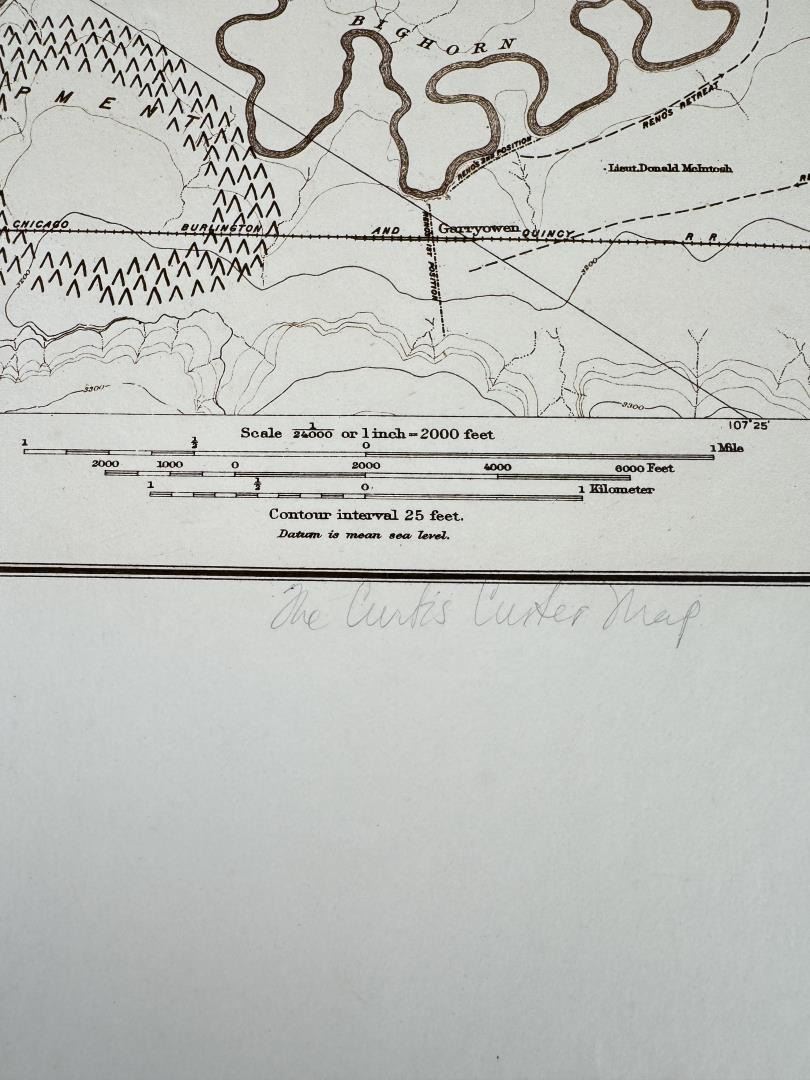 BIGHORN
PMENT
RENO'S RETREAT
RENO'S 2ND POSITION
Lieut. Donald McIntosh
RE
CHICAGO BURLINGTON AND QUINCY R. R
Garryowen
RENO'S 1ST POSITION
3200
3200
3300
3300
107°25'
Scale 1/24000 or 1 inch = 2000 feet
1 ½ 0 1 Mile
2000 1000 0 2000 4000 6000 Feet
1 ½ 0 1 Kilometer
Contour interval 25 feet.
Datum is mean sea level.
The Curtis Custer Map